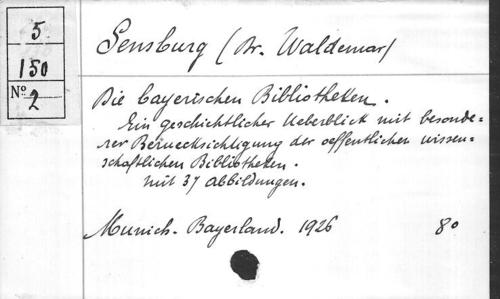 5
150
No 2
Sensburg (Dr. Waldemar)
Die bayerischen Bibliotheken.
Ein geschichtlicher Ueberblick mit besonde-
rer Beruecksichtigung der oeffentlichen wissen-
schaftlichen Bibliotheken.
mit 37 Abbildungen.
Munich. Bayerland. 1926 8o